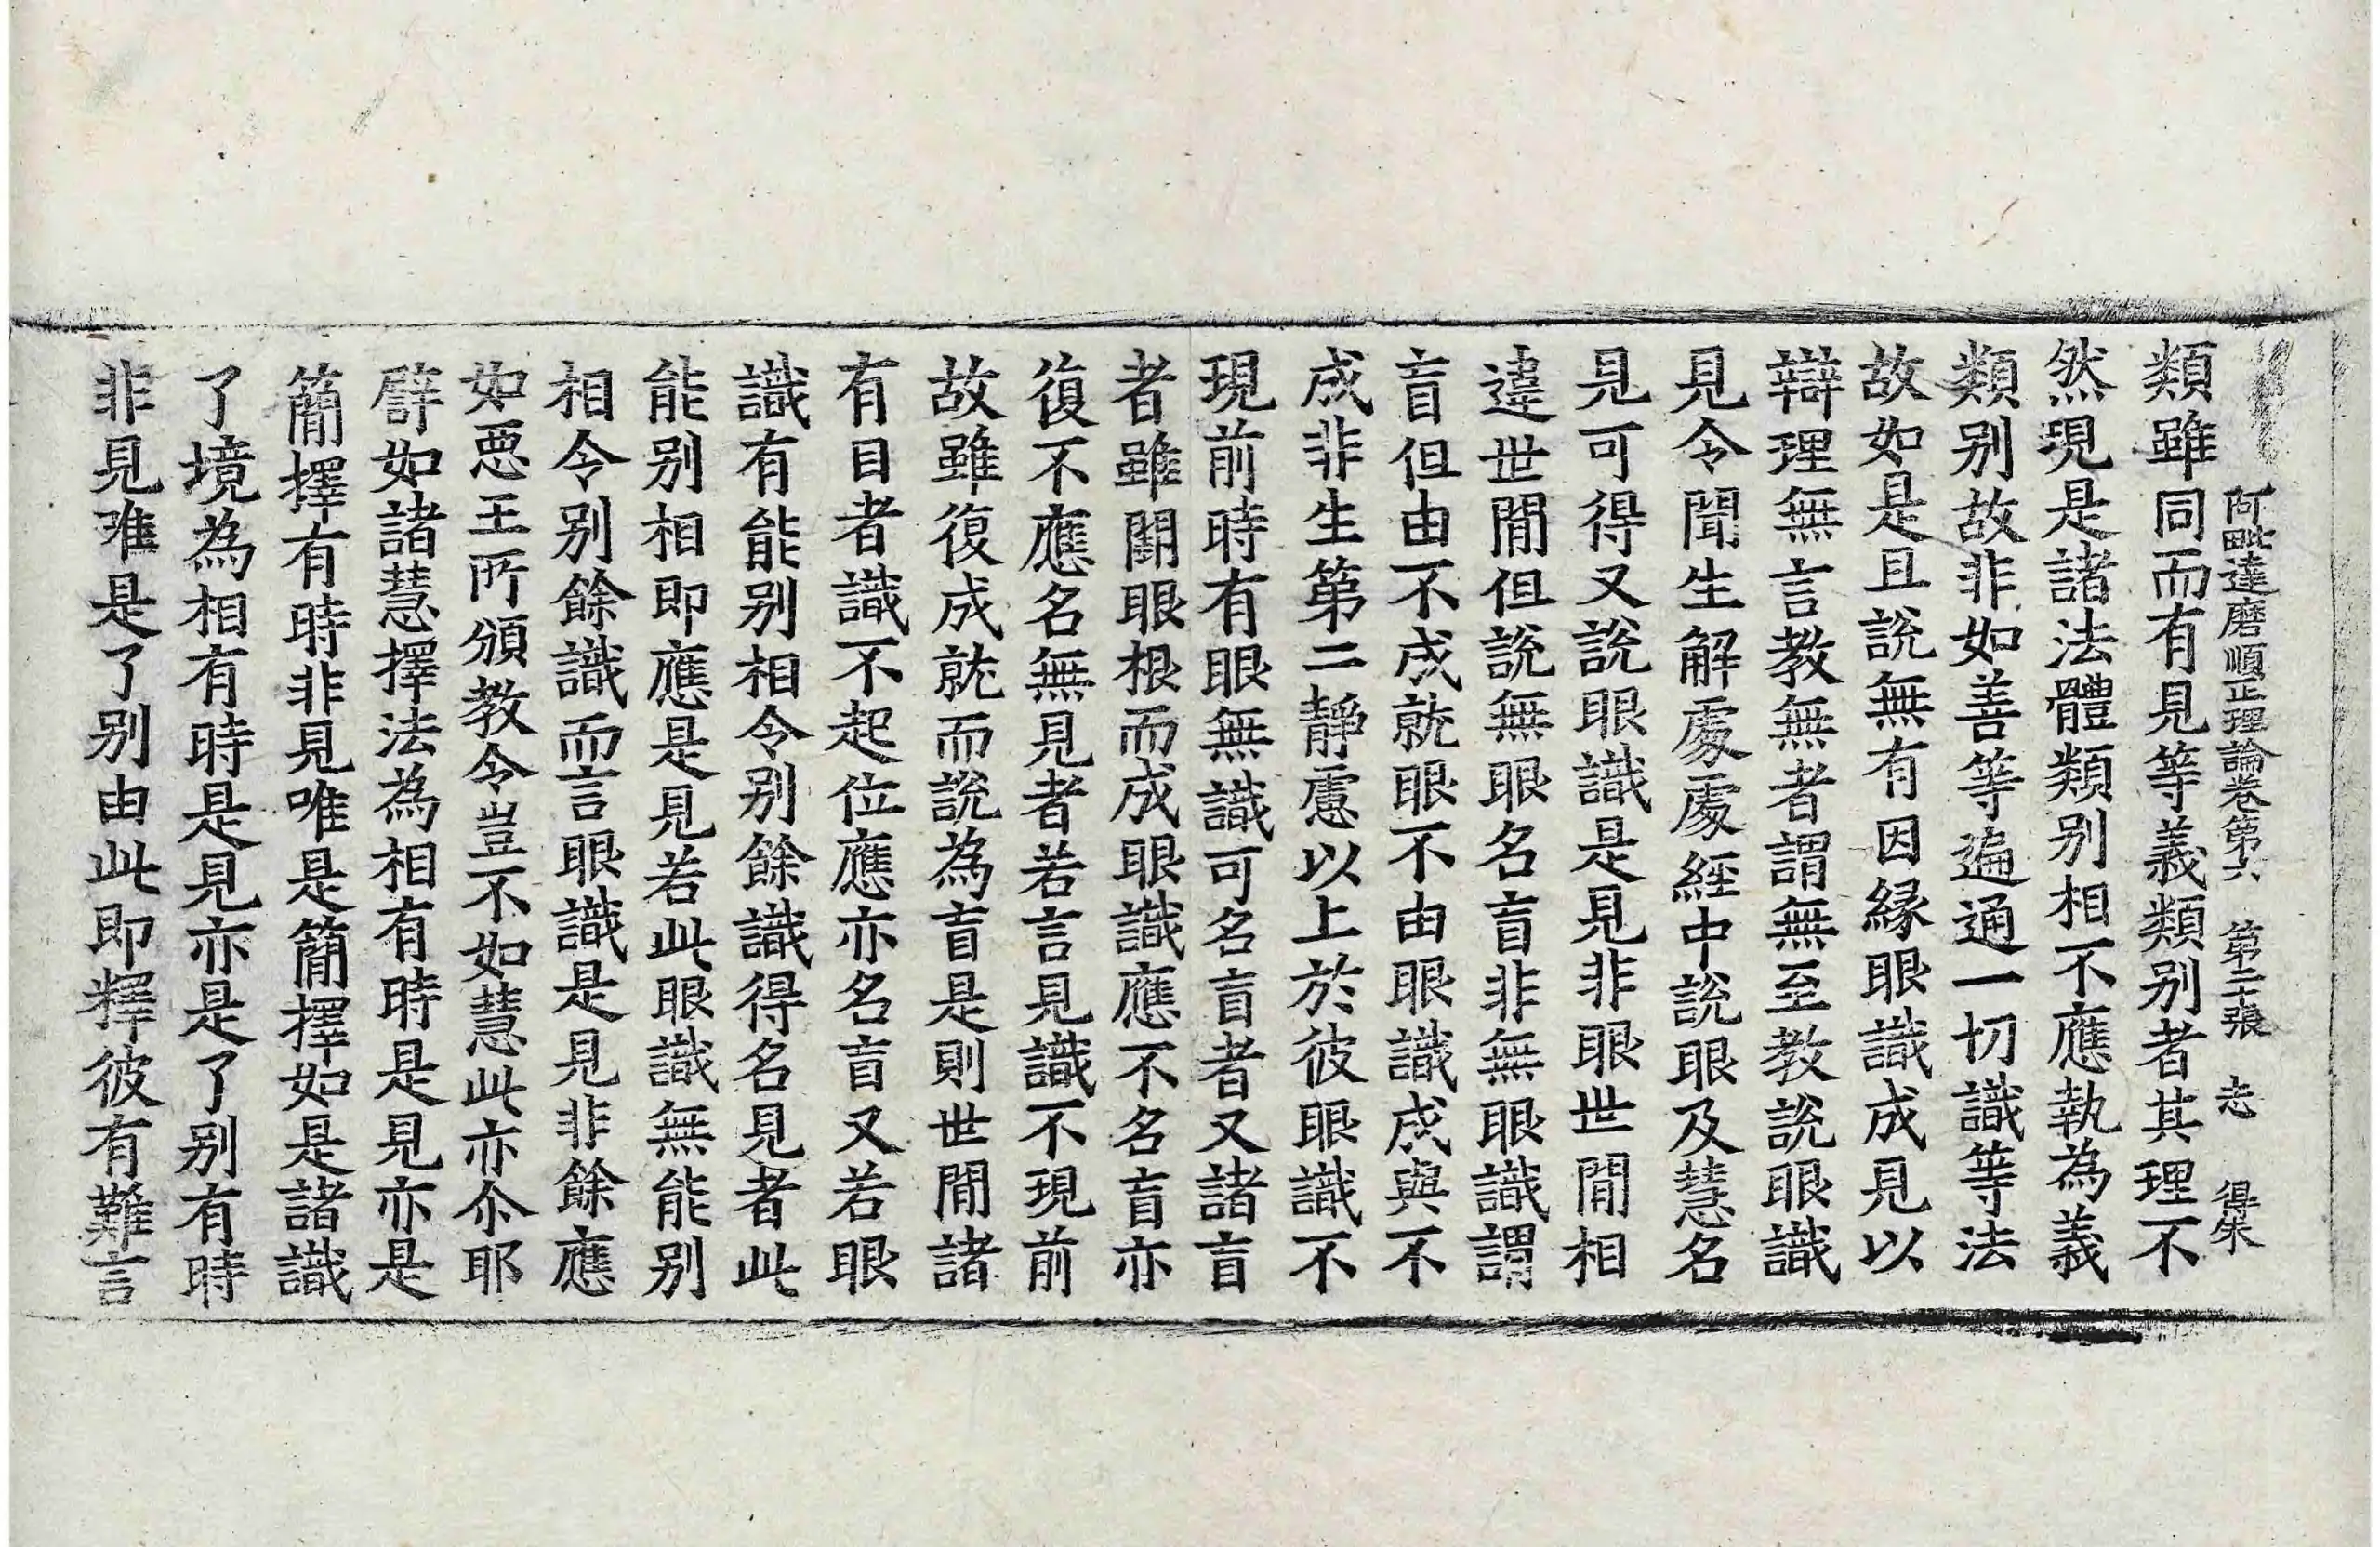 阿毗達磨順正理論卷第六 第二十張 志 得朱
類雖同而有見等義類别者其理不
然現是諸法體類别相不應執為義
類别故非如善等遍通一切識等法
故如是且說無有因緣眼識成見以
辯理無言教無者謂無至教說眼識
見令聞生解處處經中說眼及慧名
見可得又說眼識是見非眼世間相
違世間但說無眼名盲非無眼識謂
盲但由不成就眼不由眼識成與不
成非生第二靜慮以上於彼眼識不
現前時有眼無識可名盲者又諸盲
者雖闕眼根而成眼識應不名盲亦
復不應名無見者若言見識不現前
故雖復成就而說為盲是則世間諸
有目者識不起位應亦名盲又若眼
識有能别相令别餘識得名見者此
能别相即應是見若此眼識無能别
相令别餘識而言眼識是見非餘應
如惡王所頒教令豈不如慧此亦尒耶
譬如諸慧擇法為相有時是見亦是
簡擇有時非見唯是簡擇如是諸識
了境為相有時是見亦是了别有時
非見唯是了别由此即釋彼有難言